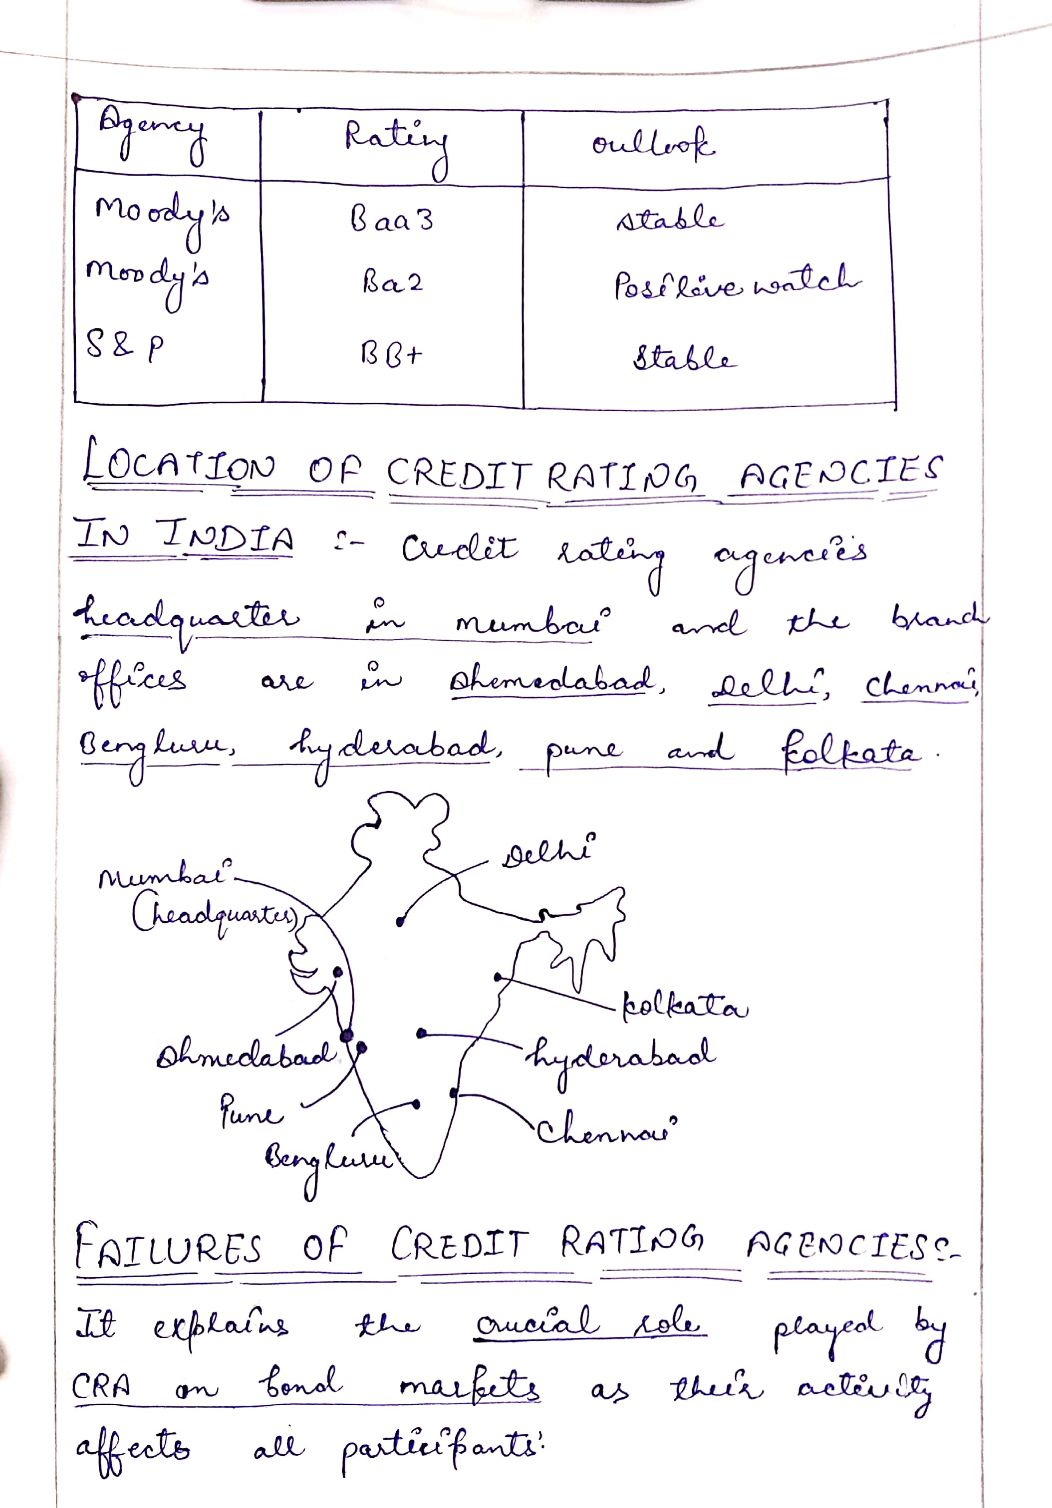 Agency Rating Outlook
Moody's Baa3 Stable
Moody's Ba2 Positive watch
S & P BB+ Stable
LOCATION OF CREDIT RATING AGENCIES
IN INDIA :- Credit rating agencies
headquarter in mumbai and the branch
offices are in Ahemedabad, Delhi, Chennai,
Bengluru, hyderabad, pune and kolkata.
Delhi
Mumbai
(headquarter)
kolkata
Ahmedabad
hyderabad
Pune
Chennai
Bengluru
FAILURES OF CREDIT RATING AGENCIES:-
It explains the crucial role played by
CRA on bond markets as their activity
affects all participants: